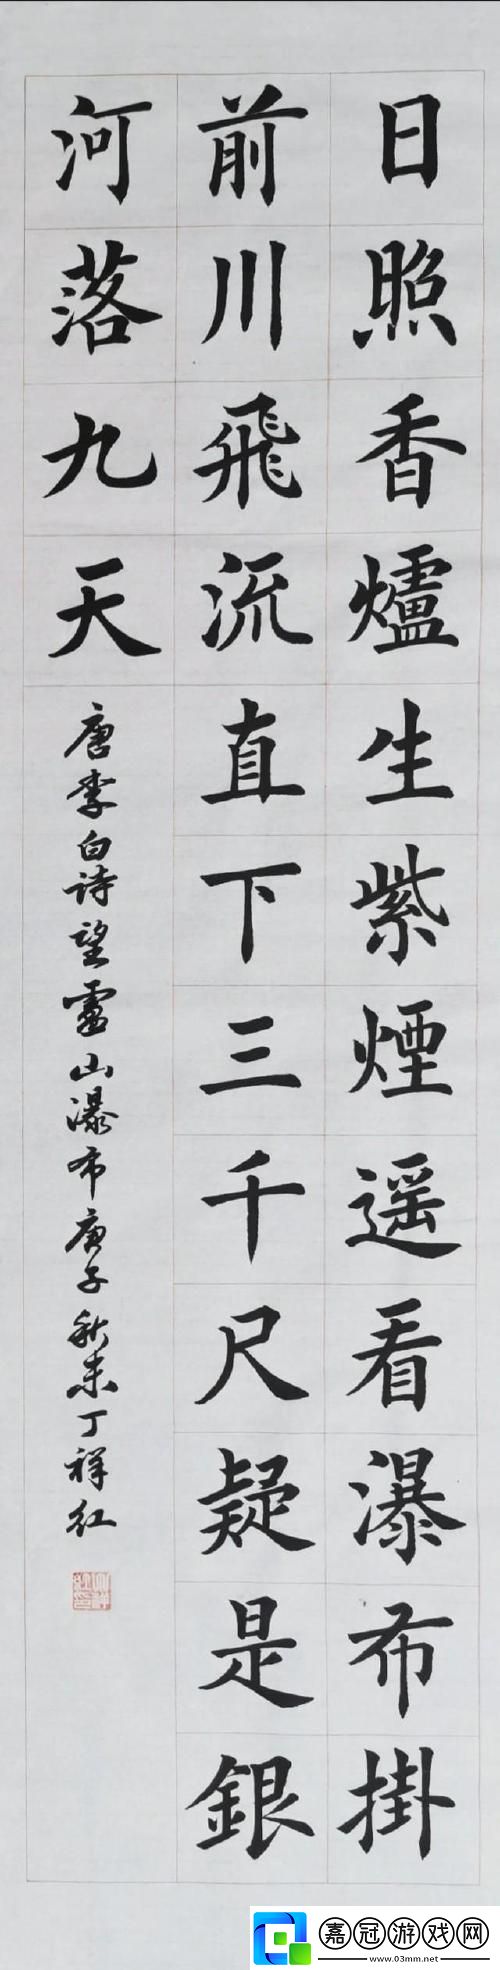 日照香爐生紫煙遥看瀑布掛
前川飛流直下三千尺疑是銀
河落九天
唐李白诗望廬山瀑布庚子秋末丁祥红
嘉冠游戏网
www.03mm.net